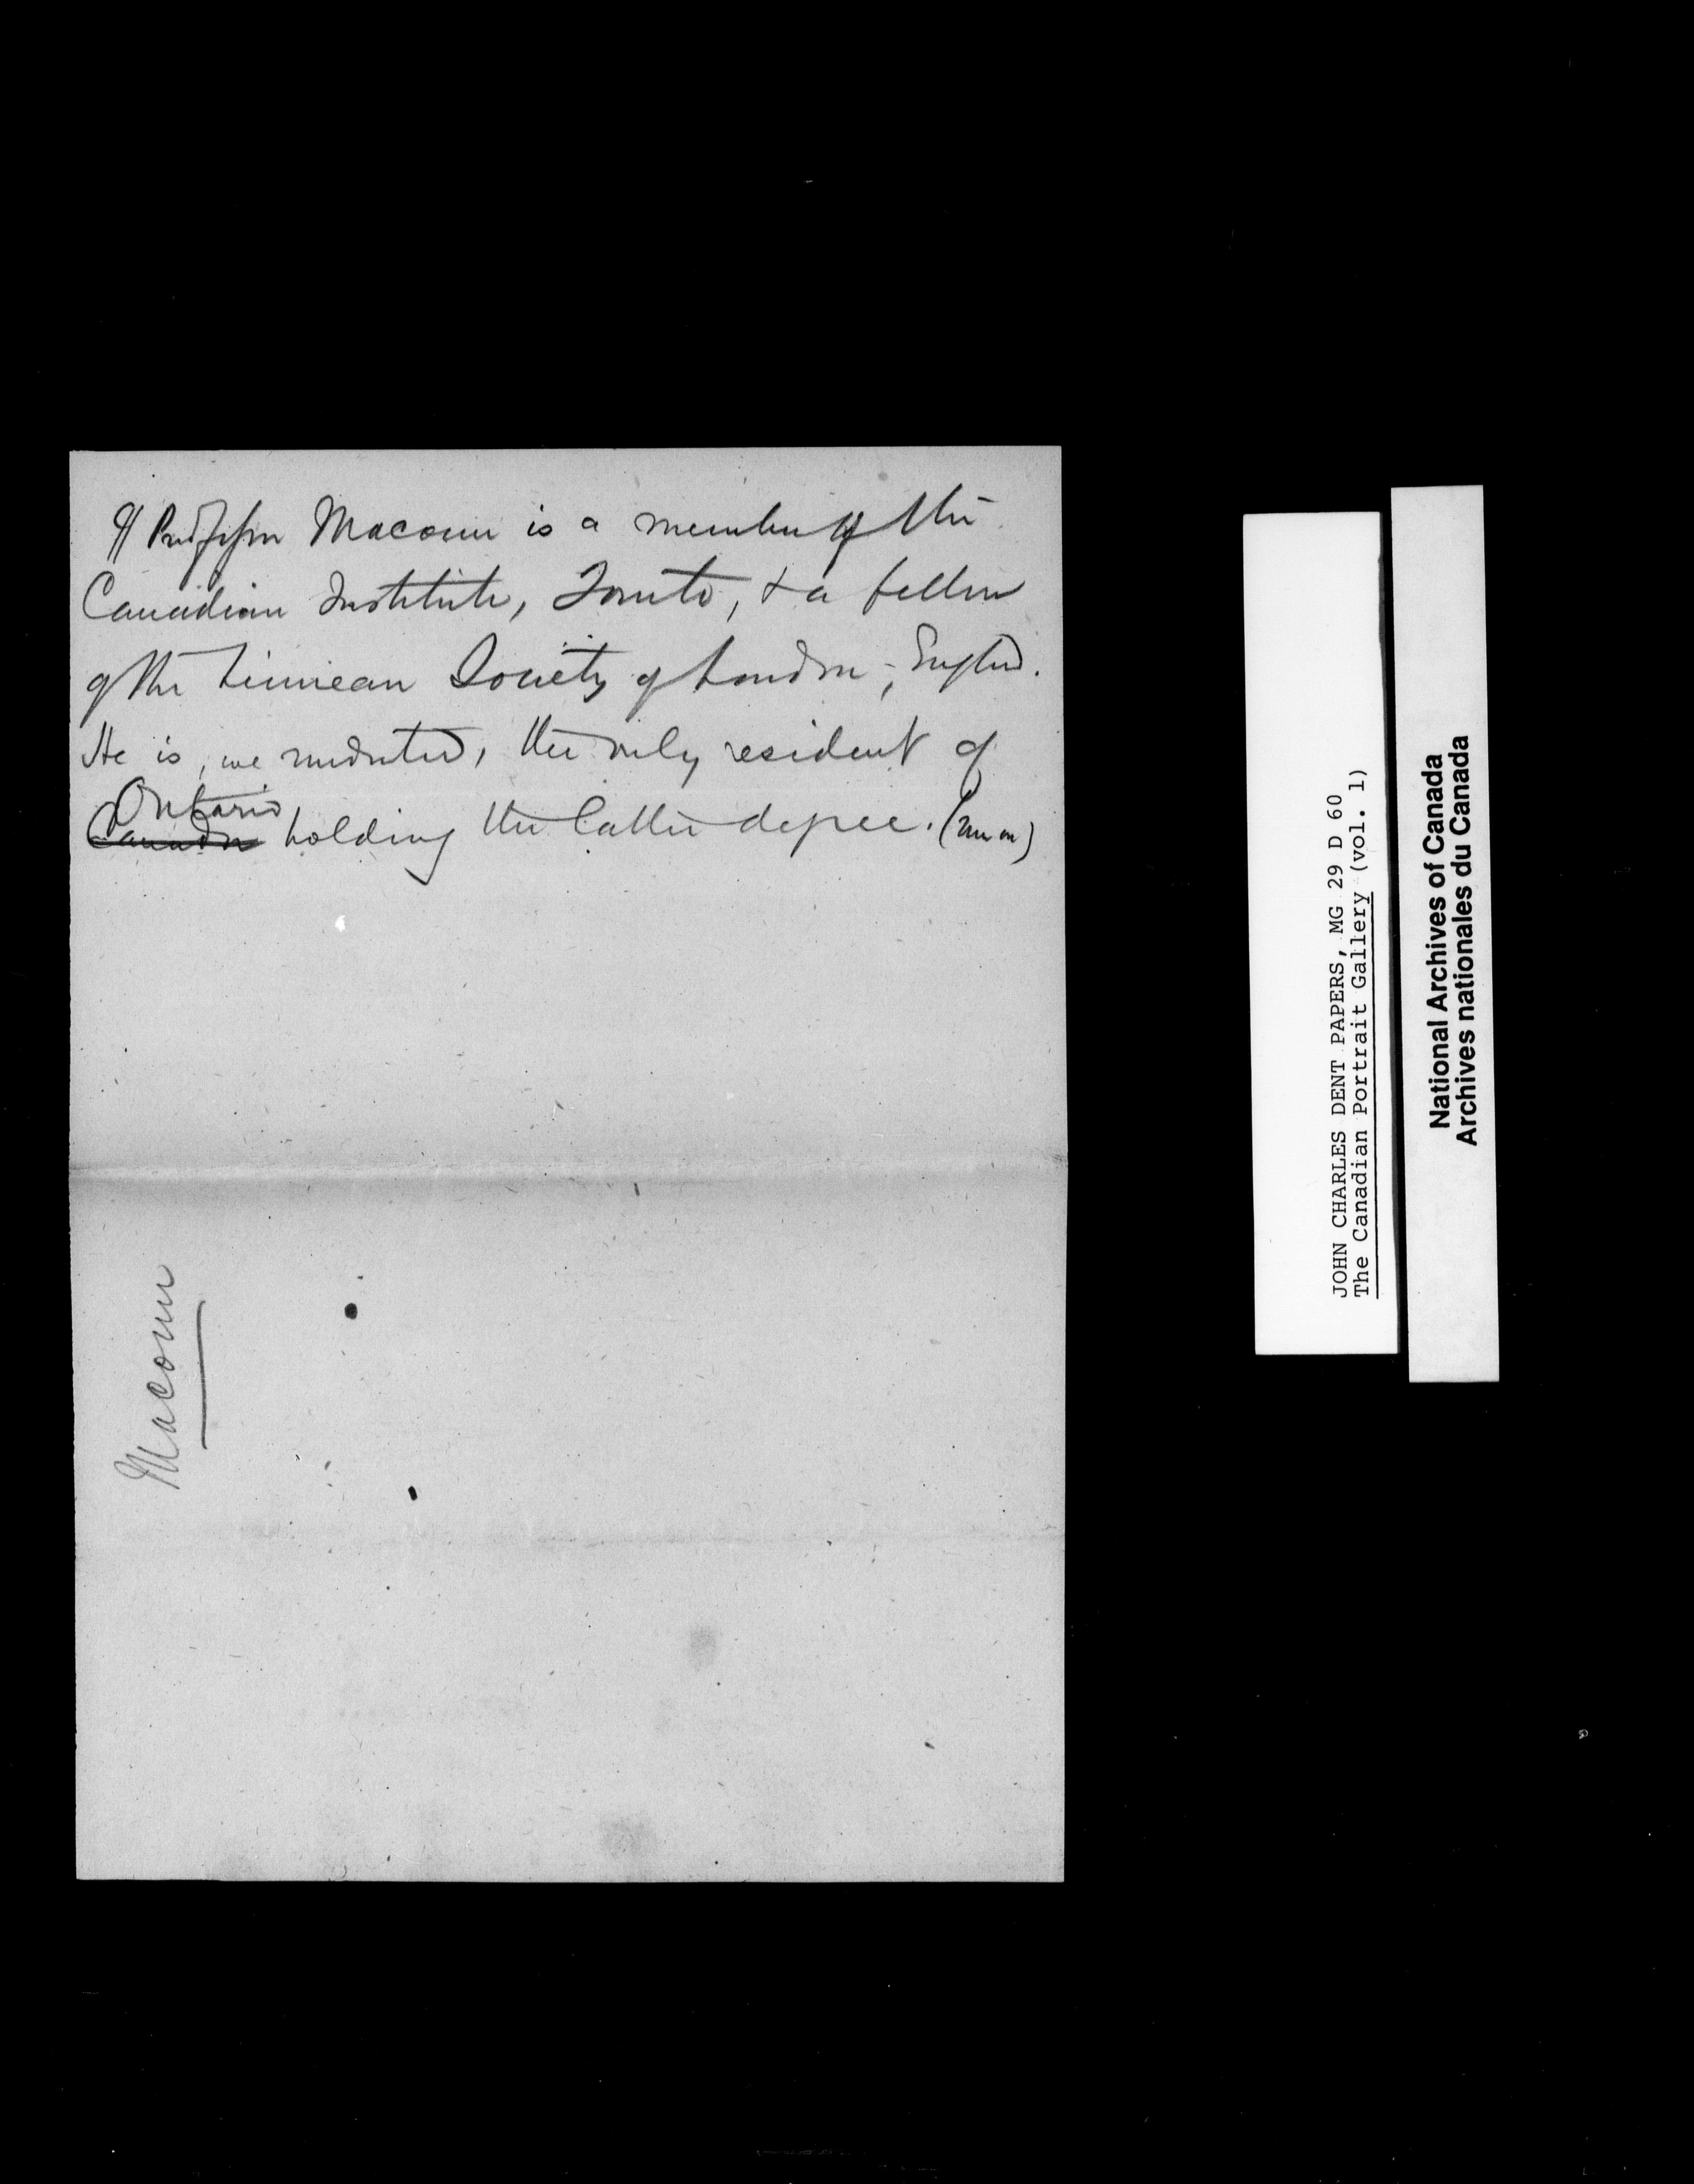 ¶ Professor Macoun is a member of the
Canadian Institute, Toronto, & a fellow
of the Linnean Society of London, England.
He is, we understand, the only resident of
Ontario
Canada holding the latter degree. (run on)
Macoun
JOHN CHARLES DENT PAPERS, MG 29 D 60
The Canadian Portrait Gallery (vol. 1)
National Archives of Canada
Archives nationales du Canada